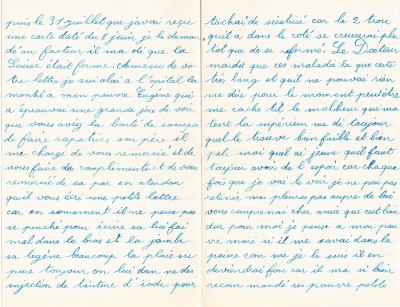 puis le 31 juillet que javais reçu
une carte daté du 8 juin, je le deman
dé au facteur il ma di que la
Suisse était fermé. Aureçu de vo
tre lettre je sui alai a l'opital la
montré a mon pauvre Eugène qui
a épreuvai une grande joie de voi
que vous aviez la bonté de soccupé
de faire rapatriés son père il
me charge de vous remercié et de
vous faire des compliments et de vous
remercié de sa par en atendan
quil vous écri une petite lettre
car en somoment il ne peux pas
se penché pour écrire sa lui fai
mal dans le bras et la jambe
sa le gêne beaucoup la plaie su
pure toujour on lui don ne des
injection de tinture d'iode pour
tachai de sicatisé car le 2 trou
quil a dans le coté se creuserai plu
tot que de se refermé. Le Docteur
ma dit que ces maladie la que cete
très long et quil ne pouvai rien
me dire pour le moment peutêtre
me cache til le malheur qui ma
tent la supérieur me di toujour
quel le trouve bien faible et bien
pale mai quel si jeune quil faut
toujour avoir de l'espoir car chaque
fois que je vai le voir je ne pui pas
retenir mes pleures pas aupre de lui
vous comprenai cher amie que cest bien
dur pour moi je pense a mon pau
ve mari si il me savai dans la
peine com me je le suis il en
deviendrai fou car il ma si bien
recom mandé ses pauvre petits